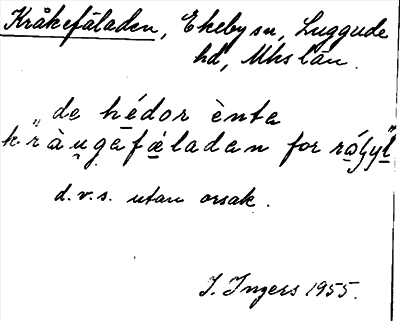 Kråkefäladen, Ekeby sn, Luggude
hd, Mhs län.
"de hédor ènte
kràu̯gefæladen for
d.v.s. utan orsak.
I. Ingers 1955.